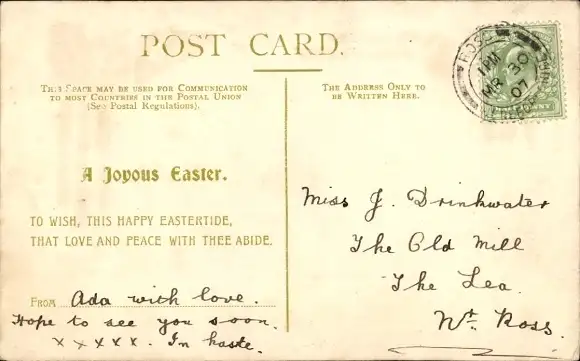 POST CARD.
THIS SPACE MAY BE USED FOR COMMUNICATION
TO MOST COUNTRIES IN THE POSTAL UNION
(See Postal Regulations).
THE ADDRESS ONLY TO
BE WRITTEN HERE.
ROSS
1 PM
MR 30
07
A Joyous Easter.
TO WISH, THIS HAPPY EASTERTIDE,
THAT LOVE AND PEACE WITH THEE ABIDE.
FROM Ada with love.
Hope to see you soon.
x x x x x. In haste.
Miss J. Drinkwater
The Old Mill
The Lea.
Nr. Ross.